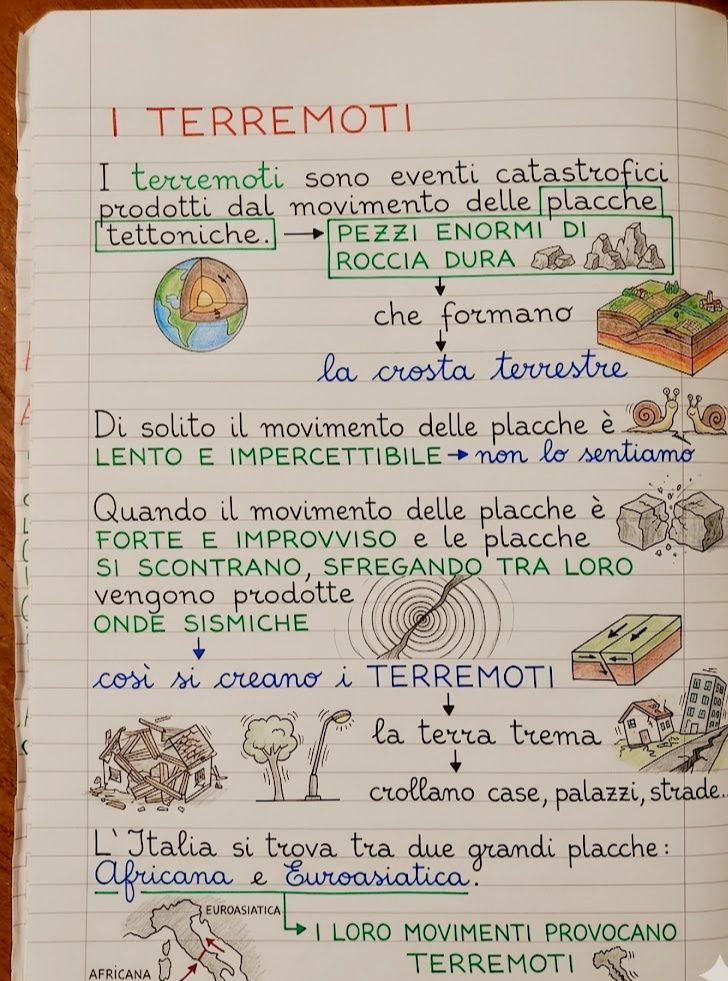 I TERREMOTI
I terremoti sono eventi catastrofici
prodotti dal movimento delle placche
tettoniche. → PEZZI ENORMI DI
ROCCIA DURA
che formano
la crosta terrestre
Di solito il movimento delle placche è
LENTO E IMPERCETTIBILE → non lo sentiamo
Quando il movimento delle placche è
FORTE E IMPROVVISO e le placche
SI SCONTRANO, SFREGANDO TRA LORO
vengono prodotte
ONDE SISMICHE
così si creano i TERREMOTI
la terra trema
crollano case, palazzi, strade..
L'Italia si trova tra due grandi placche:
Africana e Euroasiatica.
EUROASIATICA
I LORO MOVIMENTI PROVOCANO
TERREMOTI
AFRICANA